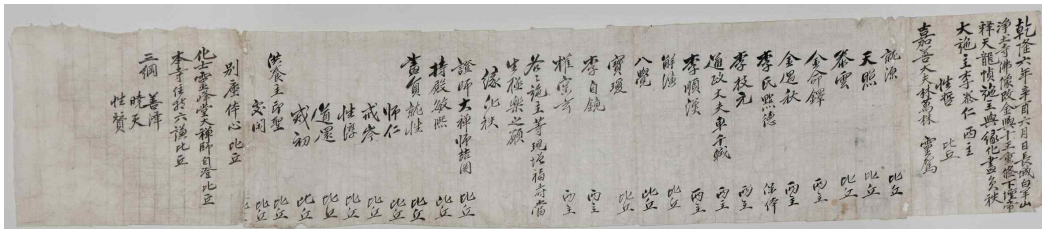 乾隆六年辛酉六月日長城白羊山
淨土寺佛像改金與十王重修下壇帝
釋天龍幀施主與緣化書矣秩
性哲 比丘
大施主李泰仁 兩主
嘉善大夫林萬秋 靈駕
就淳 比丘
天照 比丘
泰雲 比丘
金命鐸 兩主
金遇秋 兩主
李民 保体
李枝元 兩主
通政大夫車千 兩主
李順漢 兩主
鮮淡 比丘
八覺 比丘
寶瓊 比丘
李自鏡 兩主
崔宗奇 兩主
若之施主等現增福壽當
生極樂之願
緣化秩
證師大禪師 比丘
持殿敏熙 比丘
畫員就性 比丘
師仁 比丘
戒岑 比丘
性淳 比丘
道還 比丘
戒初 比丘
供養主即聖 比丘
文問 比丘
別座体心 比丘
化士雲峰堂大禪師自澄比丘
本寺住持六謙比丘
三綱 善澤
曉天
性贊